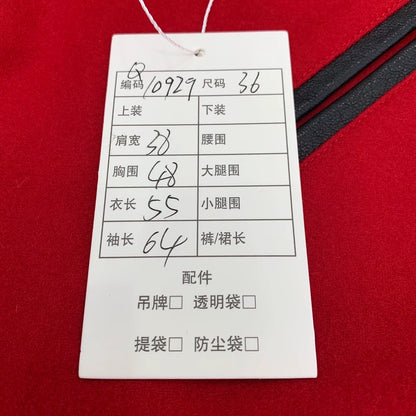 编码 Q10929 尺码 36
上装 下装
肩宽 38 腰围
胸围 48 大腿围
衣长 55 小腿围
袖长 64 裤/裙长
配件
吊牌□ 透明袋□
提袋□ 防尘袋□